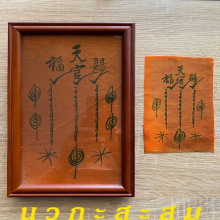 天
福官賜
天
福官賜
นวกะสะสม